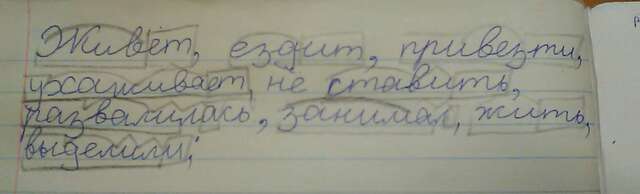 Живёт, ездит, привезти,
ухаживает, не ставить,
развалилась, занимал, жить,
выделили;